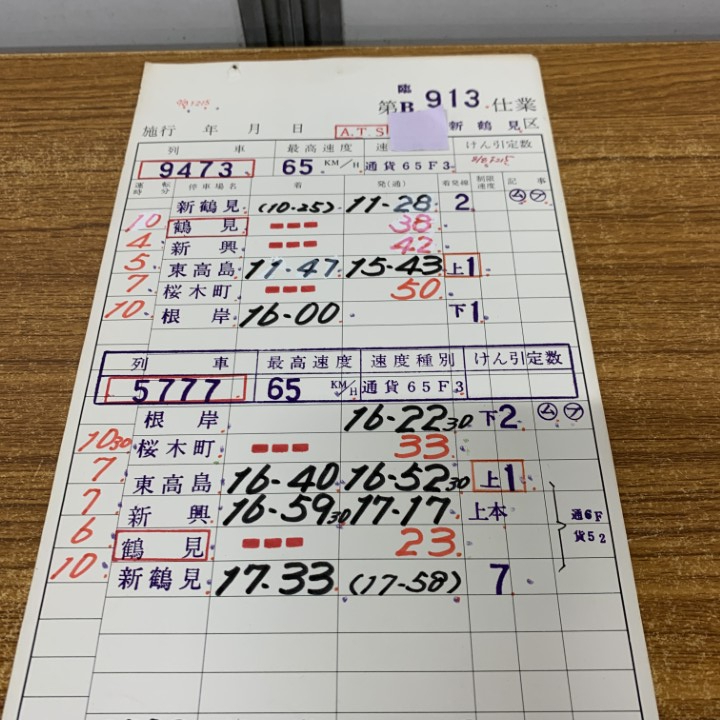 臨
第B 913 仕業
施行 年 月 日 A.T.S 新鶴見区
列車 最高速度 速 けん引定数
9473 65 KM/H 通貨65F3
運転時分 停車場名 着 発(通) 着発線 制限速度 記事
新鶴見 (10-25) 11-28 2 ム フ
10 鶴見 38
4 新興 42
5 東高島 11-47 15-43 上1
7 桜木町 50
10 根岸 16-00 下1
列車 最高速度 速度種別 けん引定数
5777 65 KM/H 通貨65F3
根岸 16-22 30 下2 ム フ
10 30 桜木町 33
7 東高島 16-40 16-52 30 上1
7 新興 16-59 30 17-17 上本
通6F
貨52
6 鶴見 23
10 新鶴見 17-33 (17-58) 7